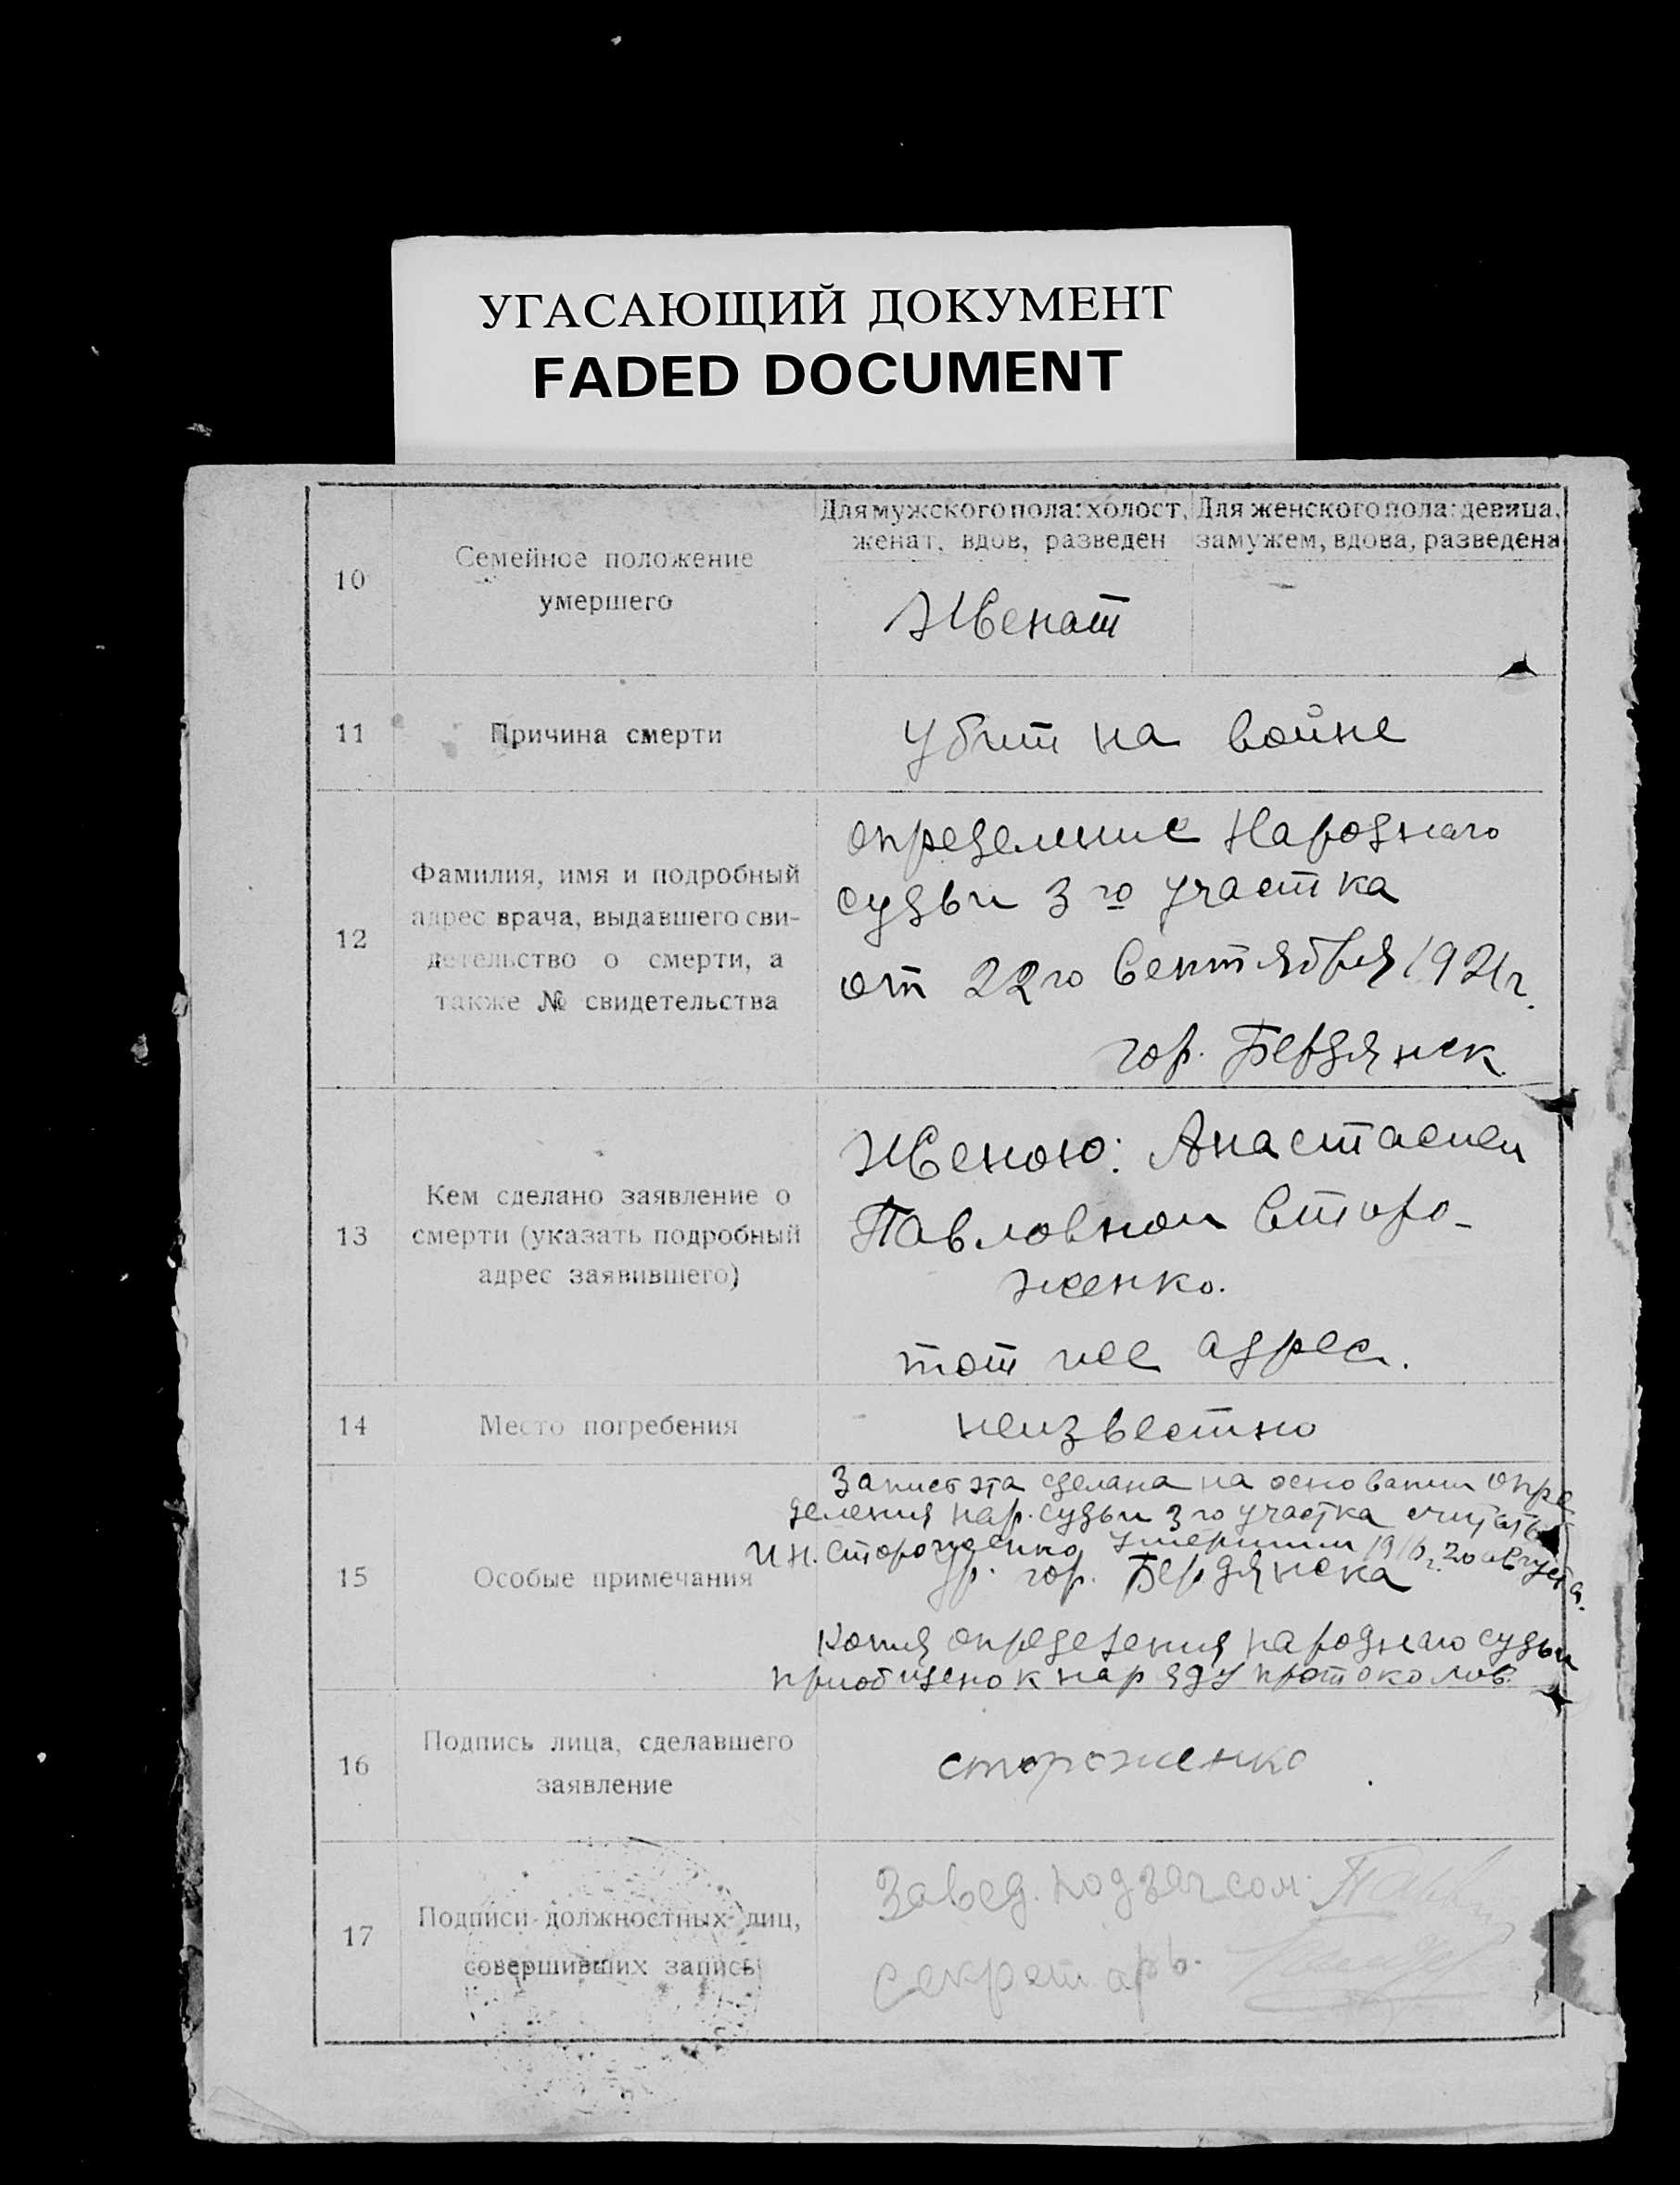 УГАСАЮЩИЙ ДОКУМЕНТ
FADED DOCUMENT
10
Семейное положение
умершего
Для мужского пола: холост,
женат, вдов, разведен
Для женского пола: девица,
замужем, вдова, разведена
Женат
11
Причина смерти
убит на войне
12
Фамилия, имя и подробный
адрес врача, выдавшего сви-
детельство о смерти, а
также № свидетельства
определение Народнаго
судьи 3го участка
от 22го Сентября 1921г.
гор. Бердянск
13
Кем сделано заявление о
смерти (указать подробный
адрес заявившего)
Женою: Анастасиеи
Павловнои Сторо-
женко.
тот же адрес.
14
Место погребения
неизвестно
15
Особые примечания
Запись эта сделана на основании опре
деления нар. судьи 3го участка считать
И Н. Стороженко умершим 1916г. 20 августа.
гр. гор. Бердянска
Копия определения народнаго судьи
приобщено к наряду протоколов.
16
Подпись лица, сделавшего
заявление
стороженко
17
Подписи должностных лиц,
совершивших запись
Завед. подзагсом:
Секретарь.